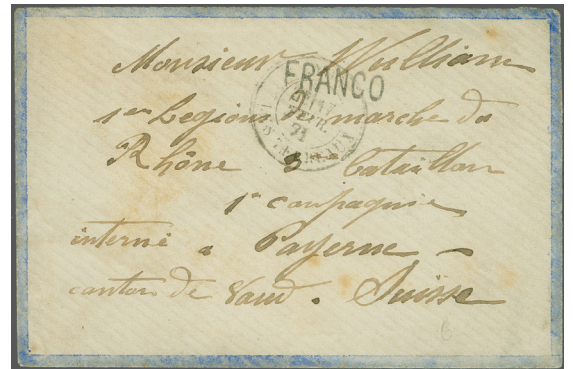 Monsieur Wulliam
FRANCO
1ere Legion marche du
FEVR.
71
Rhône 3 bataillon
1e compagnie
interné a Payerne –
canton de Vaud. Suisse
6